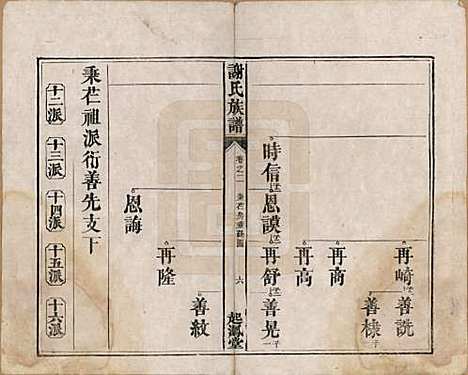 善詵
再崎
善様
再裔
再高
時信
恩謨
再舒
善晃
謝氏族譜
卷之二
六
起鳳堂
再隆
善紋
恩誨
乘芢祖派衍善先支下
十二派
十三派
十四派
十五派
十六派